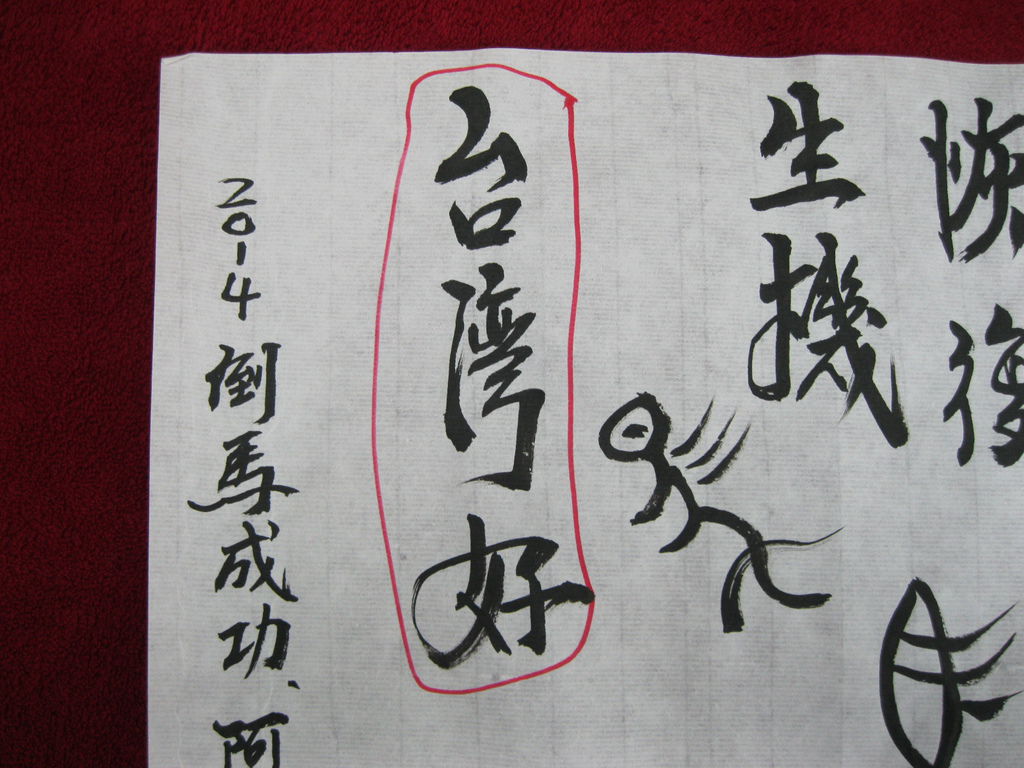 恢復
生機
台灣好
2014倒馬成功、阿